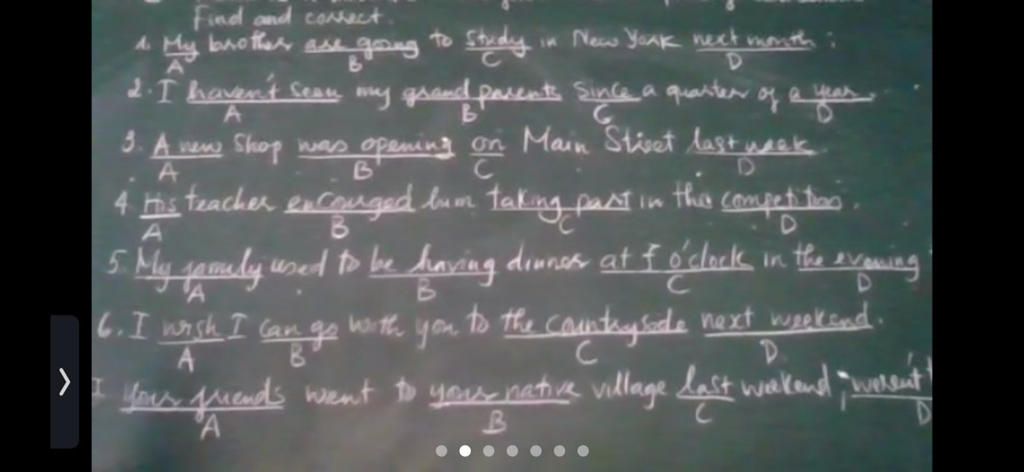 Find and correct.
1. My brother are going to study in New York next month;
A B C D
2. I haven't seen my grandparents since a quarter of a year.
A B C D
3. A new shop was opening on Main Street last week
A B C D
4. His teacher encouraged him taking part in the competition.
A B C D
5. My family used to be having dinner at 7 o'clock in the evening
A B C D
6. I wish I can go with you to the countryside next weekend.
A B C D
Your friends went to your native village last weekend, weren't
A B C D